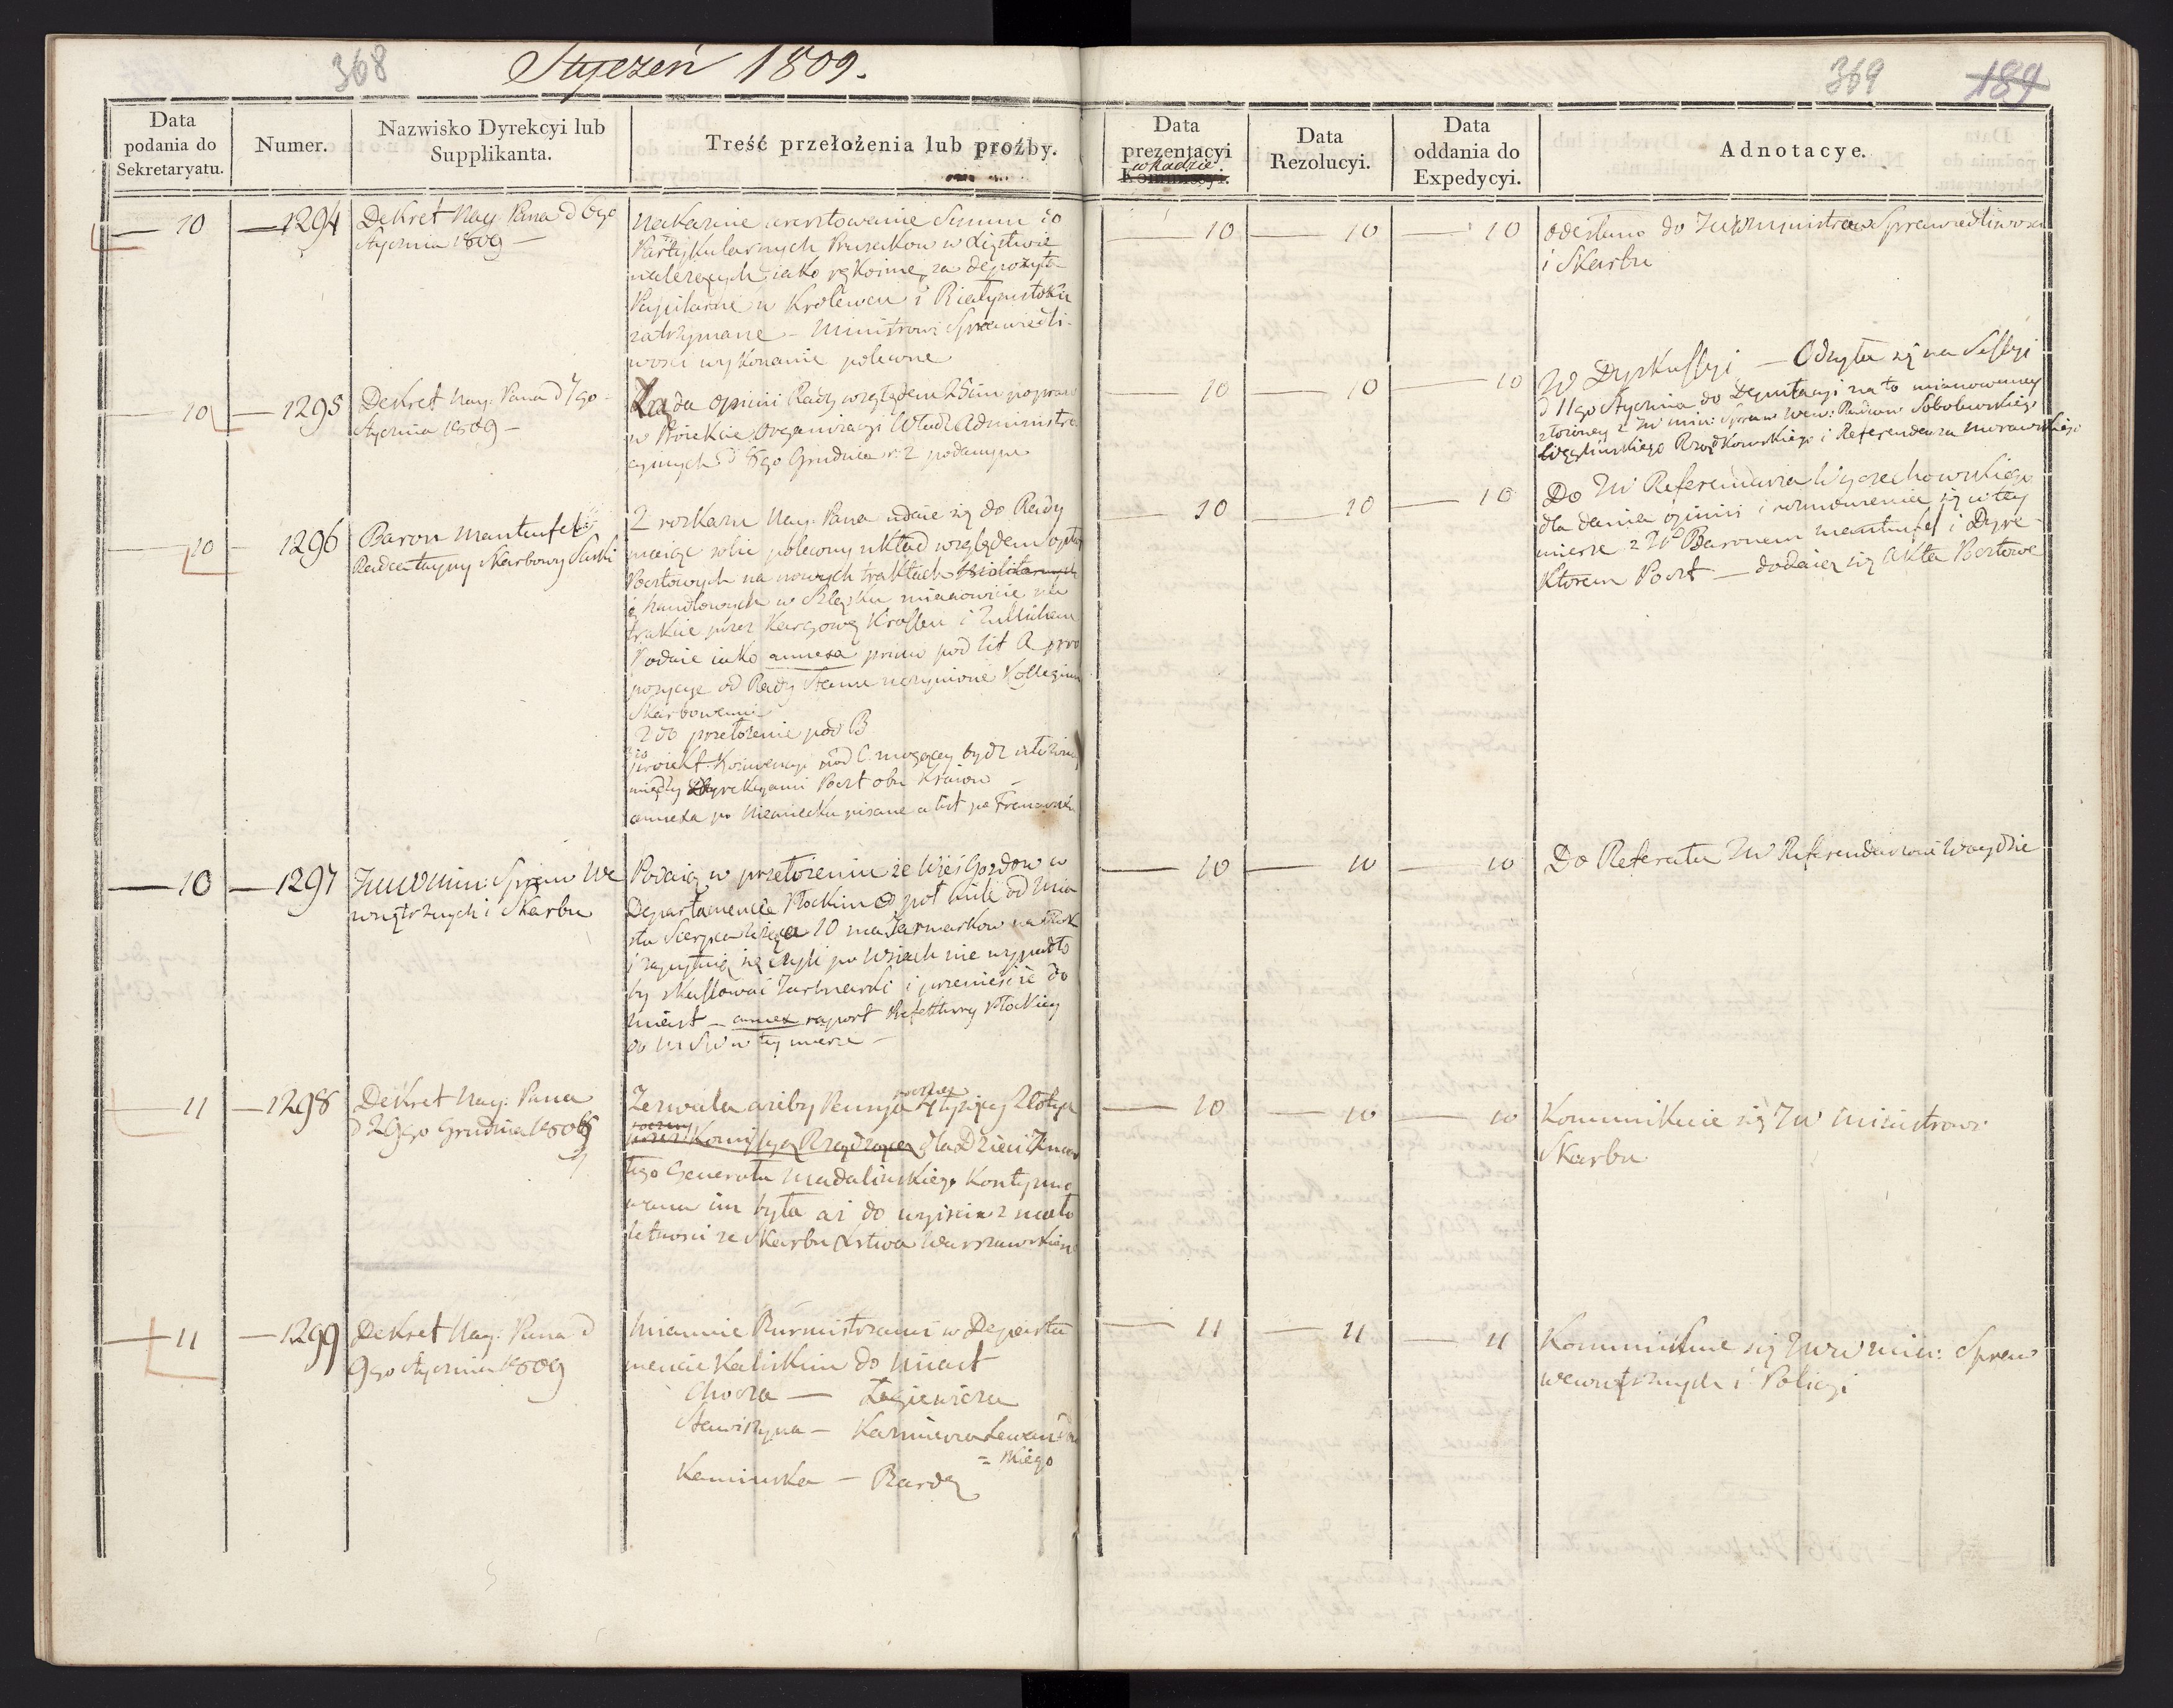 368
Styczeń 1809.
369
189
Data podania do Sekretaryatu.
Numer.
Nazwisko Dyrekcyi lub Supplikanta.
Treść przełożenia lub proźby.
Data prezentacyi w Radzie Kommissyi.
Data Rezolucyi.
Data oddania do Expedycyi.
Adnotacye.
— 10 — 1294
Dekret Nay: Pana d 6go
Stycznia 1809 —
Nakazuie aresztowanie Summ do
Partykularnych Prusakow w Xięstwie
należących iako rękoimę za depozyta
Pupilarne w Krolewcu i Białymstoku
zatrzymane — Ministrowi Sprawiedli-
wosci wykonanie polecone
— 10 — 10 — 10
odesłano do JWW Ministrow Sprawiedliwosci
i Skarbu
— 10 — 1295
Dekret Nay: Pana d 7go
Stycznia 1809 —
Żąda Opinii Rady względem 25ciu popraw
w Proiekcie Organizacyi Władz Administra
cyinych d 8go Grudnia r: z podanym
— 10 — 10 — 10
W Dyskussyi — Odsyła się na Sessyi
d 11go Stycznia do Deputacyi na to mianowaney
złożoney z JW Min: Spraw Wew: Panow Sobolewskiego
Węglinskiego Rządkowskiego i Referendarza Morawskiego
— 10 — 1296
Baron Manteufel
Radca Tayny Skarbowy Saski
Z rozkazu Nay: Pana udaie się do Rady
maiąc sobie polecony układ względem opłat
Pocztowych na nowych traktach Militarnych
i handlowych w Szląsku mianowicie na
trakcie przez Kargowę Krossen i Zullichau
Podaie iako annexa primo pod lit A pro
pozycye od Rady Stanu uczynione Kollegium
Skarbowemu
2do przełożenie pod B
3io proiekt Konwencyi pod C mogącey bydz ułożoney
między Dyrekcyami Poczt obu Kraiow —
annexa po Niemiecku pisane a list po Francusku
— 10 — 10 — 10
Do JW Referendarza Wyczechowskiego
dla dania opinii i rozmowienia się w tey
mierze z JW Baronem Manteufel i Dyre-
ktorem Poczt — dodaią się Akta Pocztowe
— 10 — 1297
JWW Min: Spraw We
wnętrznych i Skarbu
Podaią w przełożeniu że Wieś Gozdow w
Departamencie Płockim o poł mili od Mia
sta Sierpca leżąca 10 ma Jarmarkow na Rok
i zapytuią się czyli po Wsiach nie wypadło
by skassować Jarmarki i przenieść ie do
Miast — annex raport Prefektury Płockiey
do M S W w tey mierze —
— 10 — 10 — 10
Do Referatu JW Referendarzowi Woydzie
— 11 — 1298
Dekret Nay: Pana
d 29go Grudnia 1808
Zezwala ażeby Pensya roczna 4 tysięcy Złotych
przez Kommissyą Rządzącą dla Dzieci Zmar
łego Generała Madalinskiego Kontynuo
wana im była aż do wyiscia z mało
letnosci ze Skarbu Xstwa Warszawskiego
— 10 — 10 — 10
Kommunikuie się JW Ministrowi
Skarbu
— 11 — 1299
Dekret Nay: Pana d
9go Stycznia 1809
Mianuie Burmistrzami w Departa
mencie Kaliskim do Miast
Chocza — Łagiewicza
Stawiszyna — Kazmierza Lewandow
= skiego
Kaminska — Bardę
— 11 — 11 — 11
Kommunikuie się JWW Min: Spraw
wewnętrznych i Policyi